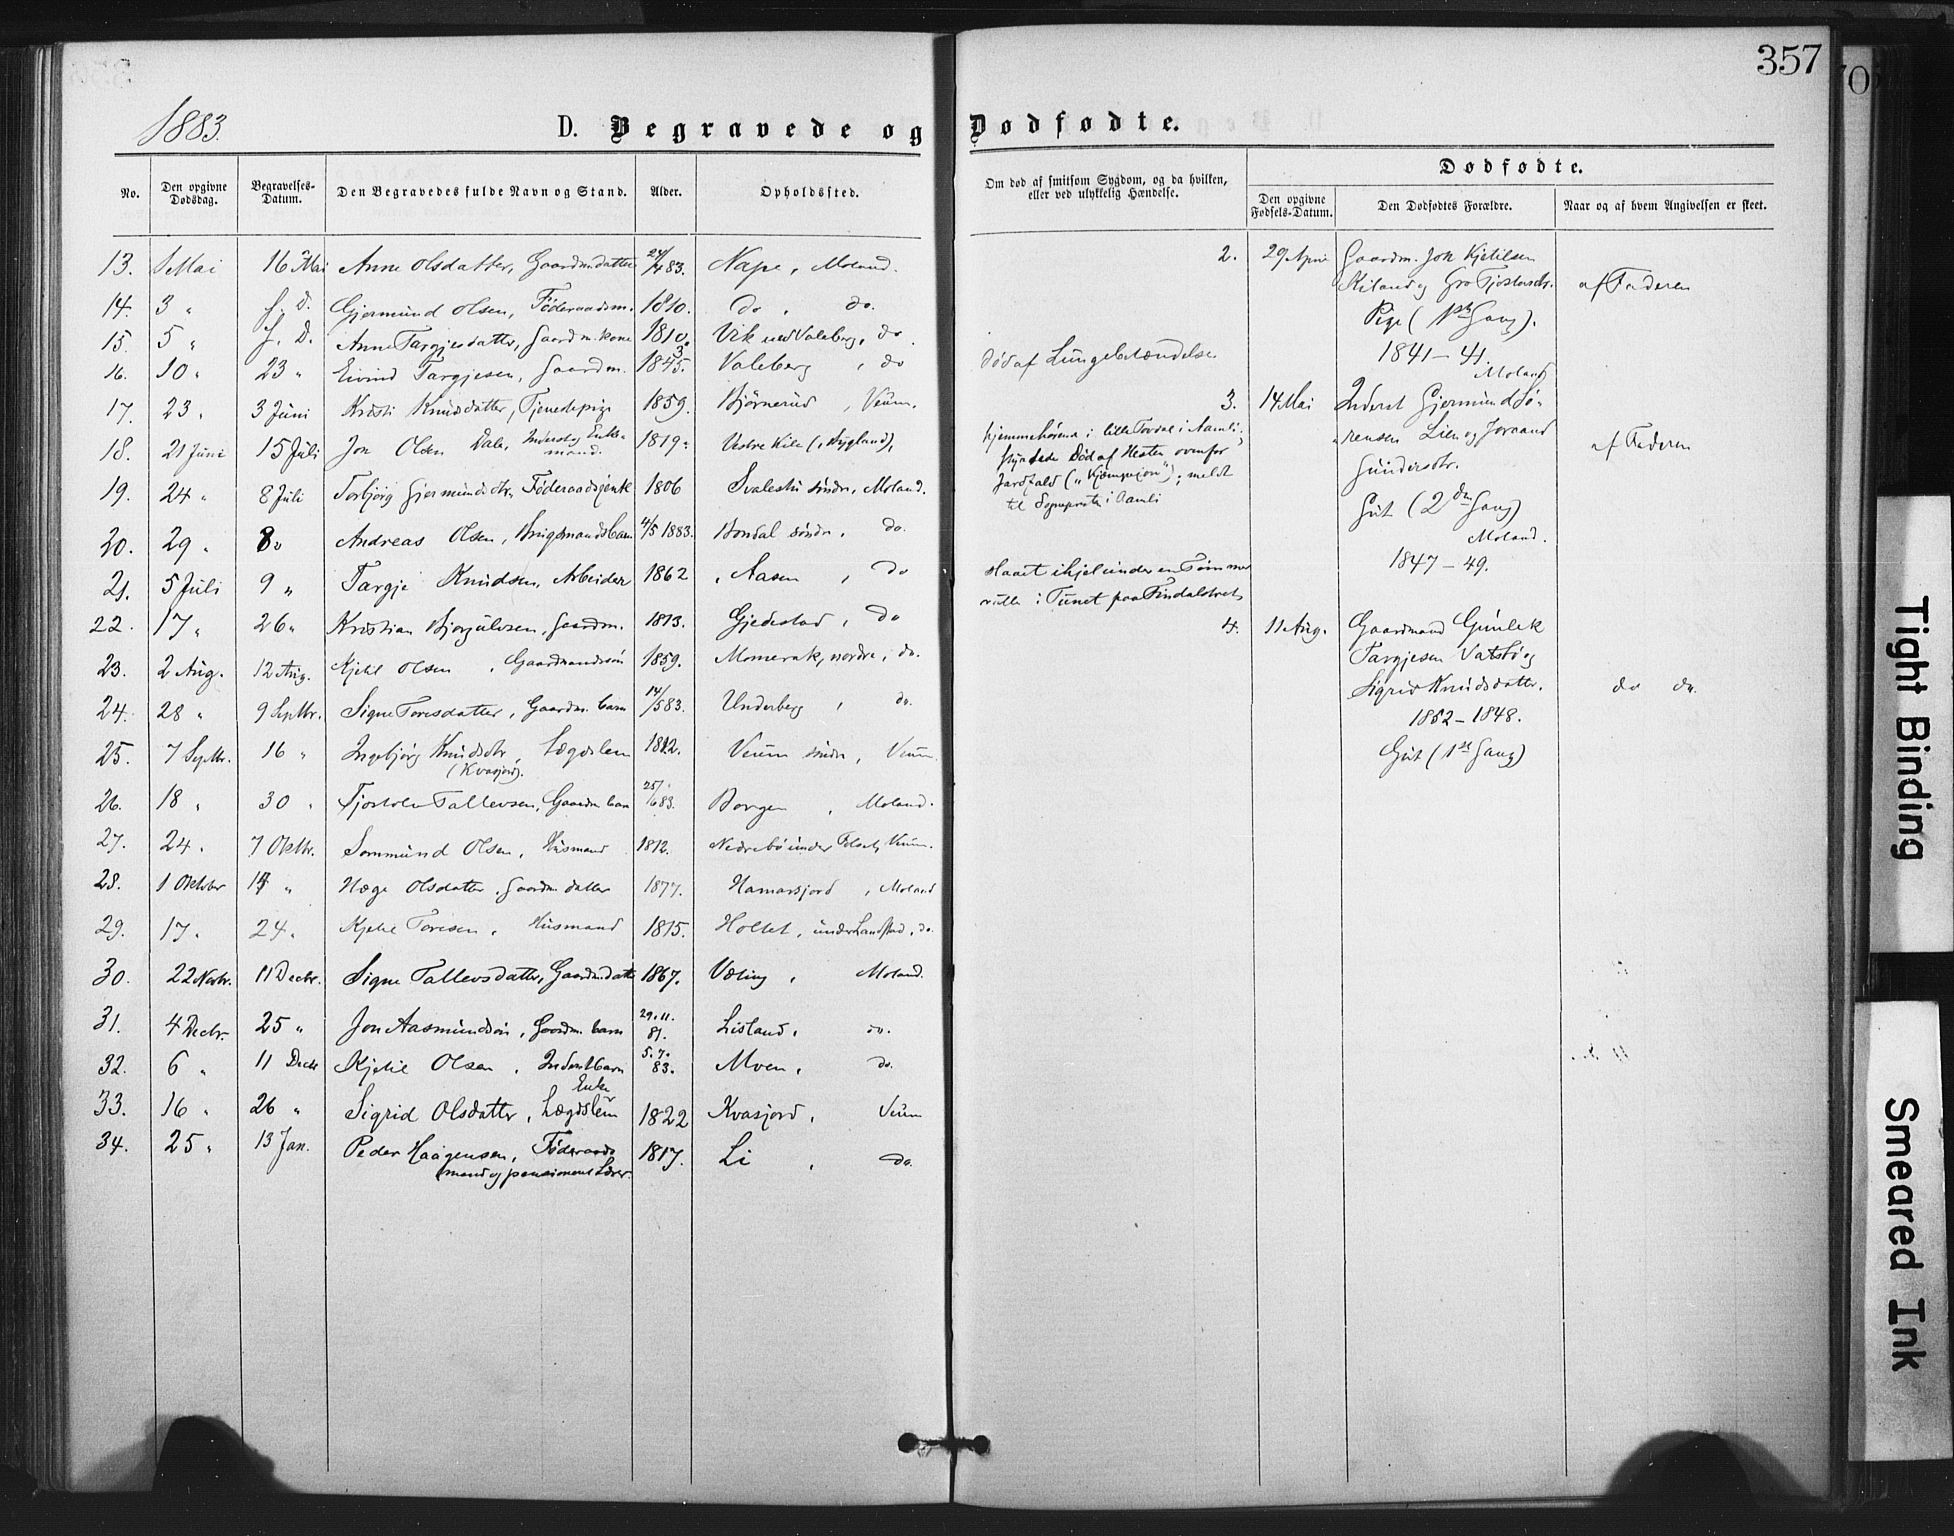 357
1883.
D. Begravede og Dødfødte.
No.
Den opgivne Dødsdag.
Begravelses-Datum.
Den Begravedes fulde Navn og Stand.
Alder.
Opholdssted.
Om død af smitsom Sygdom, og da hvilken, eller ved ulykkelig Hændelse.
Dødfødte.
Den opgivne Fødsels-Datum.
Den Dødfødtes Forældre.
Naar og af hvem Angivelsen er skeet.
13. 1 Mai 16 Mai Anne Olsdatter, Gaardm. datter 24/4 83. Nape, Moland.
14. 3 " f. D. Gjermund Olsen, Føderaadsm. 1810. do , do.
15. 5 " f. D. Anne Targjesdatter, Gaardm. kone 1810. Vik ved Valeberg, do.
16. 10 " 23 " Eivind Targjesen, Gaardm. 1845. Valeberg , do død af Lungebetændelse
17. 23 " 3 Juni Kristi Knudsdatter, Tjenestepige 1859. Bjørnerud , Veum.
18. 21 Juni 15 Juli Jon Olsen Dale, Inderst og Enkemand. 1819. Vestre Kile (, Nygland),
hjemmehørende i lille Tovdal i Aamli;
styrtede død af Hesten ovenfor
; meldt
til Sognepræsten i Aamli
19. 24 " 8 Juli Torbjørg Gjermundsdtr, Føderaadsjente 1806 Svalestu søndre, Moland.
20. 29 " 8 " Andreas Olsen, Brugsmandsbarn 4/5 1883. Bondal søndre, do.
21. 5 Juli 9 " Targje Knudsen, Arbeider 1862 Aasen , do
slaaet ihjel under en Tømmer
rulle i Tunet paa
22. 17 " 26 " Kristian Bjorgulvsen, Gaardm. 1813. Gjedestad , do
23. 2 Aug. 12 Aug. Kjetil Olsen , Gaardmandssøn 1859. Momerak, nordre, do.
24. 28 " 9 Septbr. Signe Toresdatter, Gaardm. barn 14/5 83. Underberg , do.
25. 7 Septbr. 16 " Ingebjørg Knudsdtr , Lægdslem 1812. Veum søndre, Veum.
(Kvasjord).
26. 18 " 30 " Tjostolv Tallevsen, Gaardm. barn 25/6 83. Borgen , Moland.
27. 24 " 7 Oktbr. Sommund Olsen, Husmand 1812. Nedrebø under Veum.
28. 1 Oktober 14 " Hæge Olsdatter, Gaardm. datter 1877. Hamarsjord , Moland
29. 17 " 24 " Kjetil Toresen, Husmand 1815. Holtet, under Landstad, do.
30. 22 Novbr. 11 Decbr. Signe Tallevsdatter, Gaardm. datter 1867. Væting , Moland.
31. 4 Decbr. 25 " Jon Aasmundsøn, Gaardm. barn 29.11. 81. Lisland, do.
32. 6 " 11 Decbr Kjetil Olsen , Inderstbarn 5.7. 83. Moen, do.
33. 16 " 26 " Sigrid Olsdatter, Enke Lægdslem 1822 Kvasjord, Veum
34. 25 " 13 Jan. Peder Haagensen, Føderaads 1817. Li , do.
mand og pensioneret Lærer.
2. 29 April Gaardm. Jon Kjetilsen
Kiland og Gro Tjostovsdtr.
Pige (1ste Gang).
1841 – 41.
Moland
af Faderen
3. 14 Mai Inderst Gjermund Sø-
rensen Lien og Joraand
Gundersdtr.
Gut (2den Gang)
Moland.
1847 – 49.
af Faderen
4. 11 Aug. Gaardmand Gunlek
Targjesen Vatsbø og
Sigrid Knudsdatter.
1852 – 1848.
Gut (1ste Gang)
do do.
Tight Binding
Smeared Ink